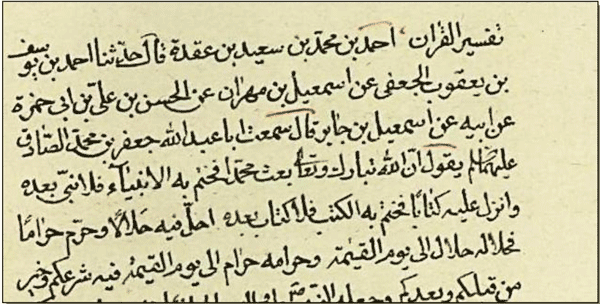 تفسير القران احمد بن محمد بن سعيد بن عقدة قال حدثنا احمد بن يوسف
بن يعقوب الجعفي عن اسمعيل بن مهران عن الحسن بن علي بن ابي حمزة
عن ابيه عن اسمعيل بن جابر قال سمعت ابا عبد الله جعفر بن محمد الصادق
يقول ان الله تبارك وتعالى بعث محمدا فختم به الانبياء فلا نبي بعده
وانزل عليه كتابا فختم به الكتب فلا كتاب بعده احل فيه حلالا وحرم حراما
فحلاله حلال الى يوم القيمة وحرامه حرام الى يوم القيمة فيه شرعكم وخبر
من قبلكم وبعدكم وجعله